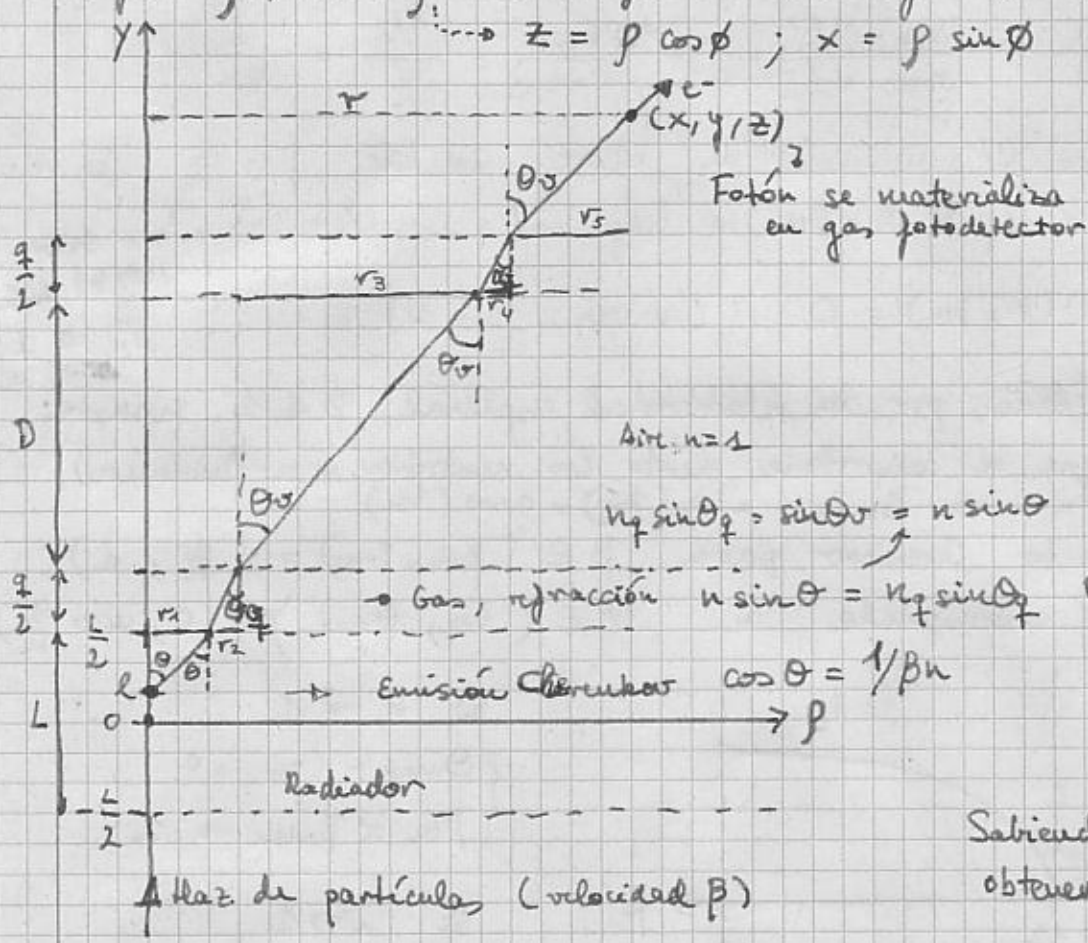 z = ρ cos ø ; x = ρ sin ø
y
r
e⁻
(x, y, z)
θv
Fotón se materializa
en gas fotodetector
r5
q/2
r3
r4
θv
D
Aire n=1
θv
nq sin θq = sin θv = n sin θ
q/2
θq
Gas, refracción n sin θ = nq sin θq
r1
L/2
r2
θ
θ
l
Emisión Cherenkov cos θ = 1/βn
L
0
ρ
Radiador
-L/2
Sabiend
Haz de partículas (velocidad β)
obtener